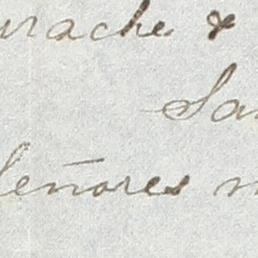 urache &
Sa
Señores